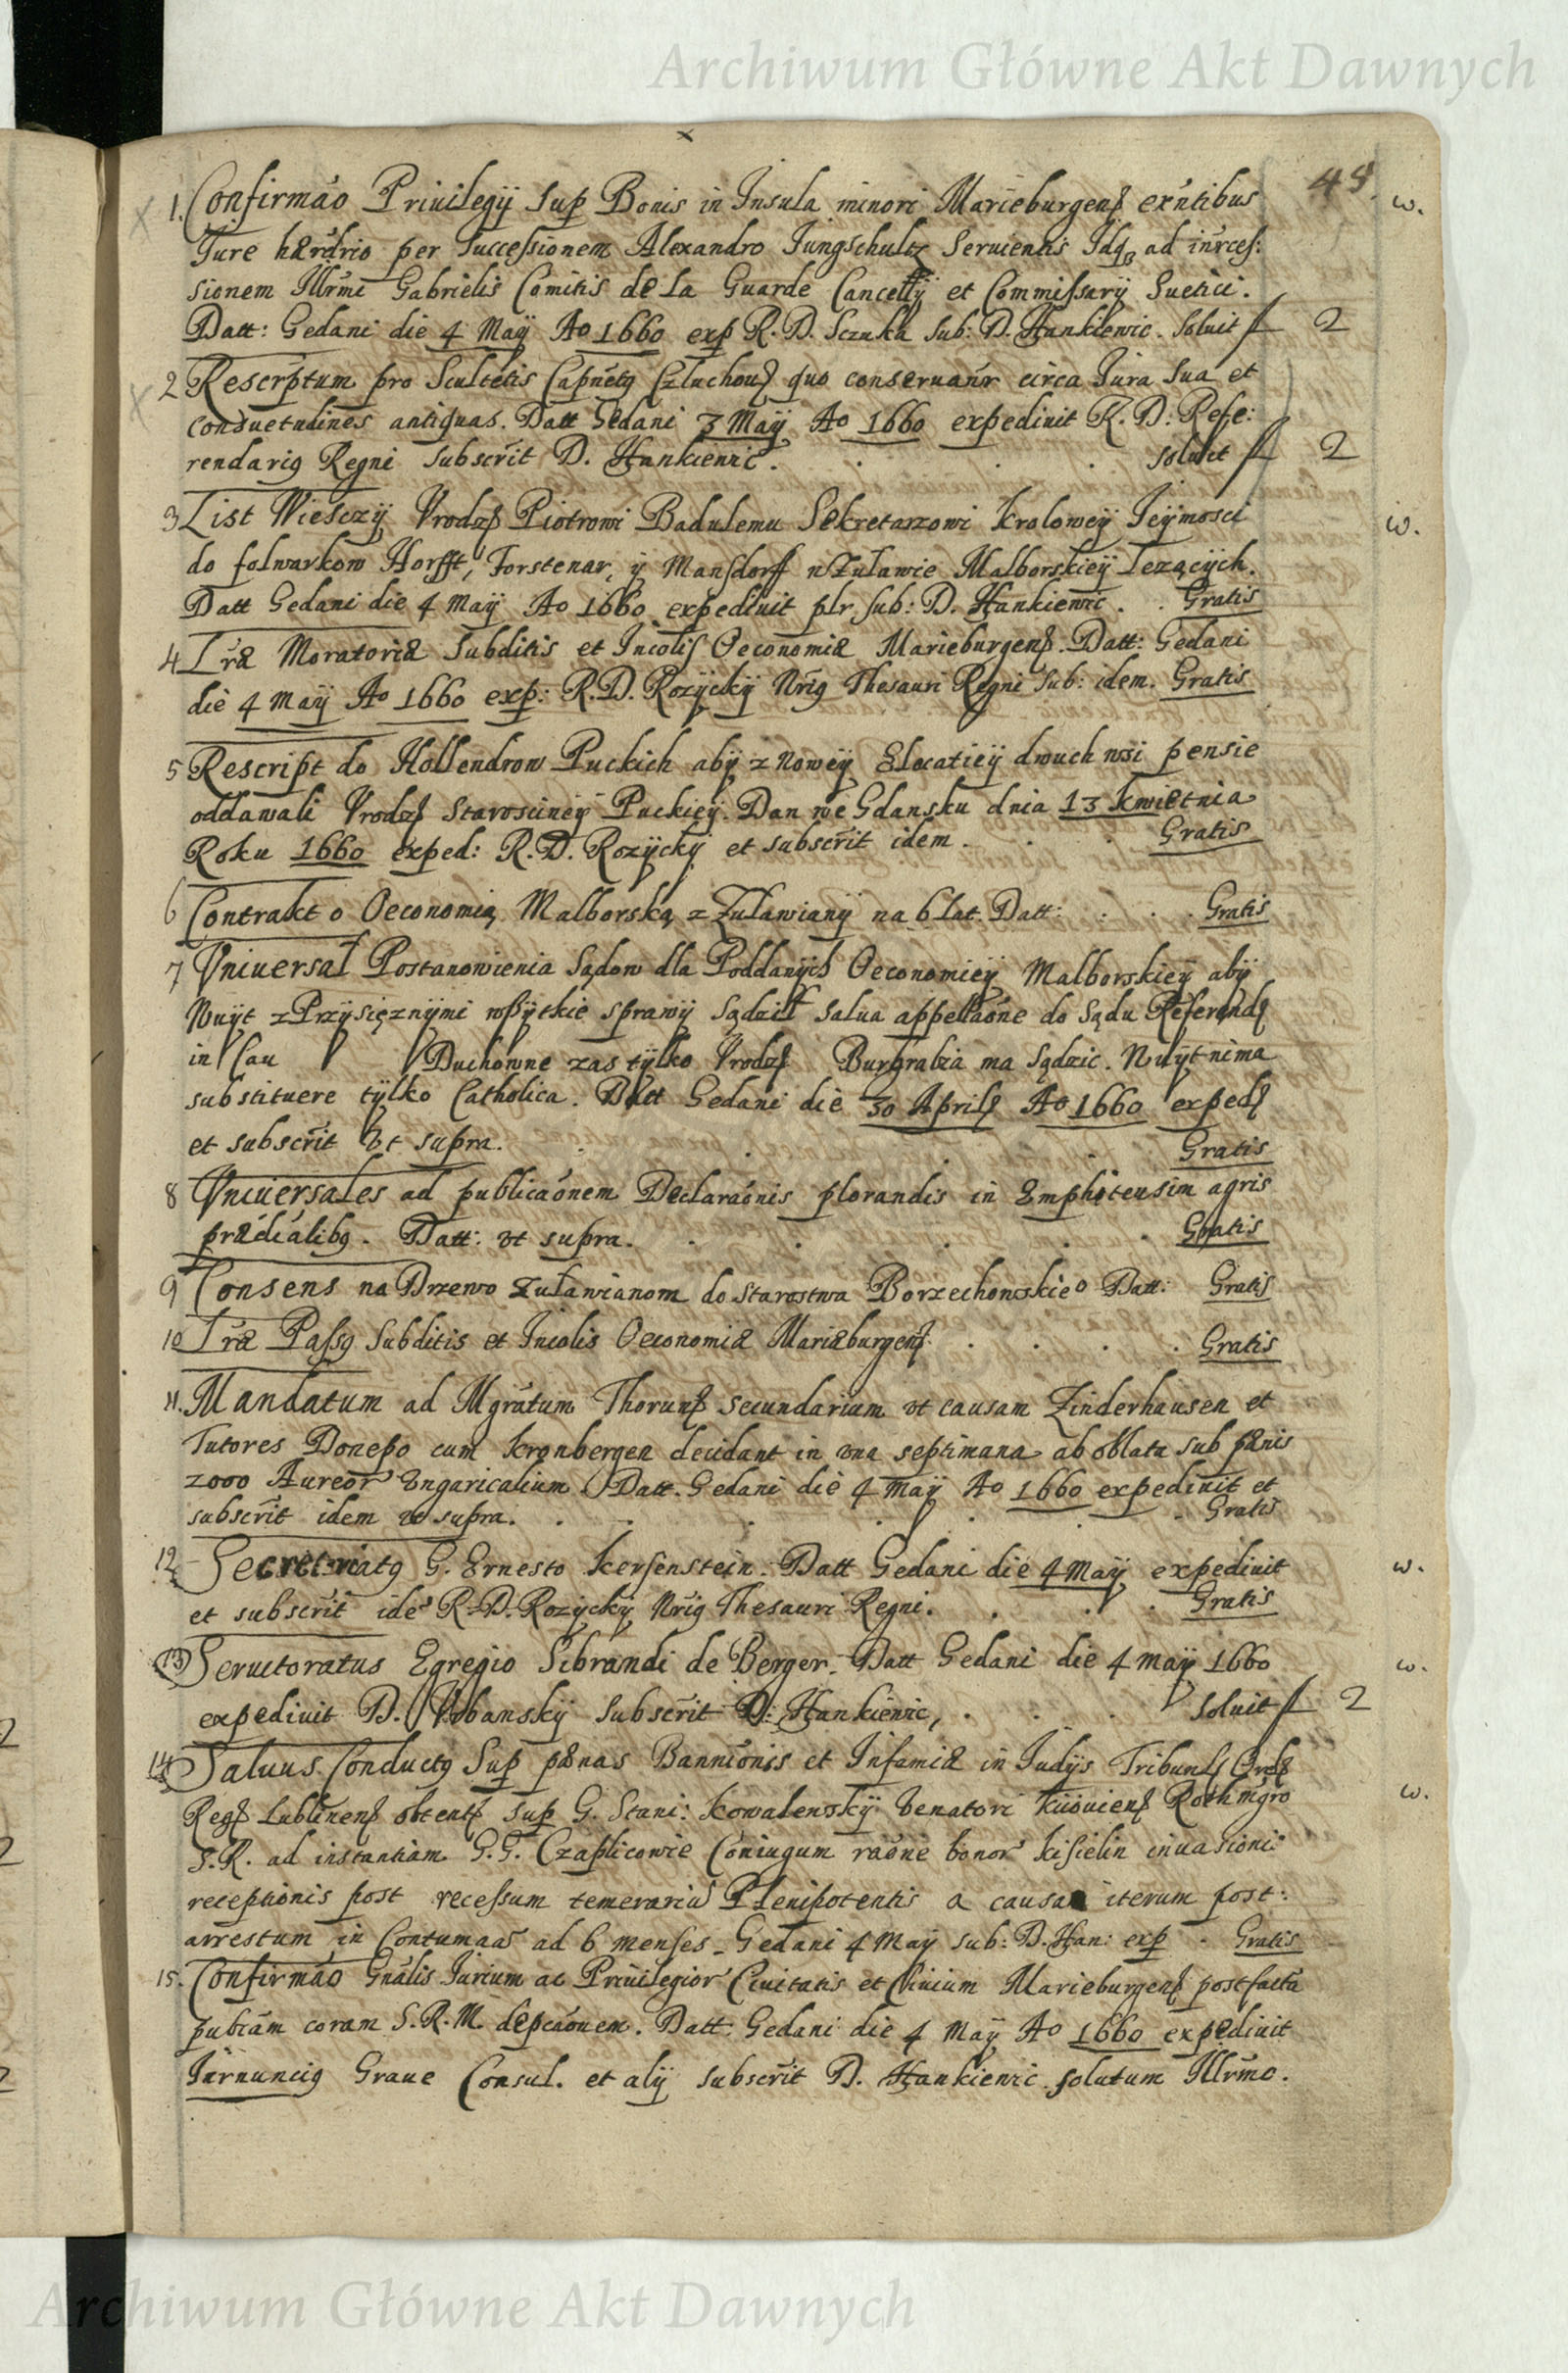 Archiwum Główne Akt Dawnych
48.
1. Confirmao Priuilegÿ Sup Bonis in Insula minori Marieburgens exntibus w.
Jure hærdrio per Successionem Alexandro Jungschultz Seruientis Idq ad inrces:
sionem Illrmi Gabrielis Comitis de La Guarde Cancellÿ et Commissarÿ Suetici.
Datt: Gedani die 4 Maÿ Ao 1660 exp R. D. Sczuka sub: D. Hankiewic. Soluit f 2
2 Rescrptum pro Scultetis Capnetq Człuchous quo conseruanr circa Jura Sua et
consuetudines antiquas. Datt Gedani 3 Maÿ Ao 1660 expediuit R. D. Refe:
rendariq Regni subscrit D. Hankiewic. soluit f 2
3 List Wiesczÿ Vrodz Piotrowi Badulemu Sekretarzowi Kroloweÿ Jeÿmosci w.
do folwarkow Horfft, Forstenar, ÿ Mansdorff w Zuławie Malborskieÿ lezącÿch.
Datt Gedani die 4 Maÿ Ao 1660 expediuit plr sub: D. Hankiewic. Gratis
4 Lræ Moratoriæ Subditis et Incolis Oeconomiæ Marieburgens. Datt: Gedani
die 4 Maÿ Ao 1660 exp: R. D. Rozÿckÿ Nriq Thesauri Regni sub: idem. Gratis
5 Rescript do Hollendrow Puckich abÿ z Noweÿ Elocatieÿ dwuch wsi pensie
oddawali Vrodz Starosciney Puckieÿ. Dan we Gdansku dnia 13 kwietnia
Roku 1660 exped: R. D. Rozÿckÿ et subscrit idem. Gratis
6 Contrakt o Oeconomią Malborską z Zuławianÿ na 6 lat. Datt: Gratis
7 Vniuersał Postanowienia Sądow dla Poddanÿch Oeconomieÿ Malborskieÿ abÿ
Wuÿt z Przÿsięznÿmi wszÿtkie sprawÿ sądził salua appellaone do Sądu Referends
in Cau Duchowne zas tÿlko Vrodz Burgrabia ma Sądzic. Wuÿt nima
substituere tÿlko Catholica. Datt Gedani die 30 Aprils Ao 1660 exped
et subscrit vt supra. Gratis
8 Vniuersales ad publicaonem Declaraonis plorandis in Emphiteusim agris
prædialibq. Datt: vt supra. Gratis
9 Consens na Drzewo Zuławianom do Starostwa Borzechowskieo Datt: Gratis
10 Lræ Passq Subditis et Incolis Oeconomiæ Mariæburgens. Gratis
11. Mandatum ad Mgratum Thoruns secundarium vt causam Zinderhausen et
Tutores Donepo cum Kronbergen decidant in vna septimana ab oblata sub pænis
2000 Aureor Vngaricalium. Datt. Gedani die 4 Maÿ Ao 1660 expediuit et
subscrit idem vt supra. Gratis
12 Secretriatq G. Ernesto Kersenstein. Datt Gedani die 4 Maÿ expediuit w.
et subscrit ide R. D. Rozÿckÿ Nriq Thesauri Regni. Gratis
13 Seruitoratus Egregio Sibrandi de Berger. Datt Gedani die 4 maÿ 1660 w.
expediuit D. Vrbanskÿ Subscrit D: Hankiewic, Soluit f 2
14 Saluus Conductq Sup pænas Bannionis et Infamiæ in Judÿs Tribunls
Regs Lublinens obtents sup G. Stani: Kowalewskÿ Venatori Kiiouiens Rothmgro w.
S. R. ad instantiam G. G. Czaplicowie Coniugum raone bonor Kisielin inuasionis
receptionis post recessum temerariu Plenipotentis a causa iterum post:
arrestum in Contumaa ad 6 menses. Gedani 4 Maÿ sub: D. Han: exp Gratis
15. Confirmao Gnalis Jurium ac Priuilegior Ciuitatis et Ciuium Marieburgens post factu
pubcam coram S. R. M. depcaonem. Datt: Gedani die 4 Maÿ Ao 1660 expediuit
Jnrnunciq Graue Consul. et alÿ subscrit D. Hankiewic solutum Illrmo.
Archiwum Główne Akt Dawnych